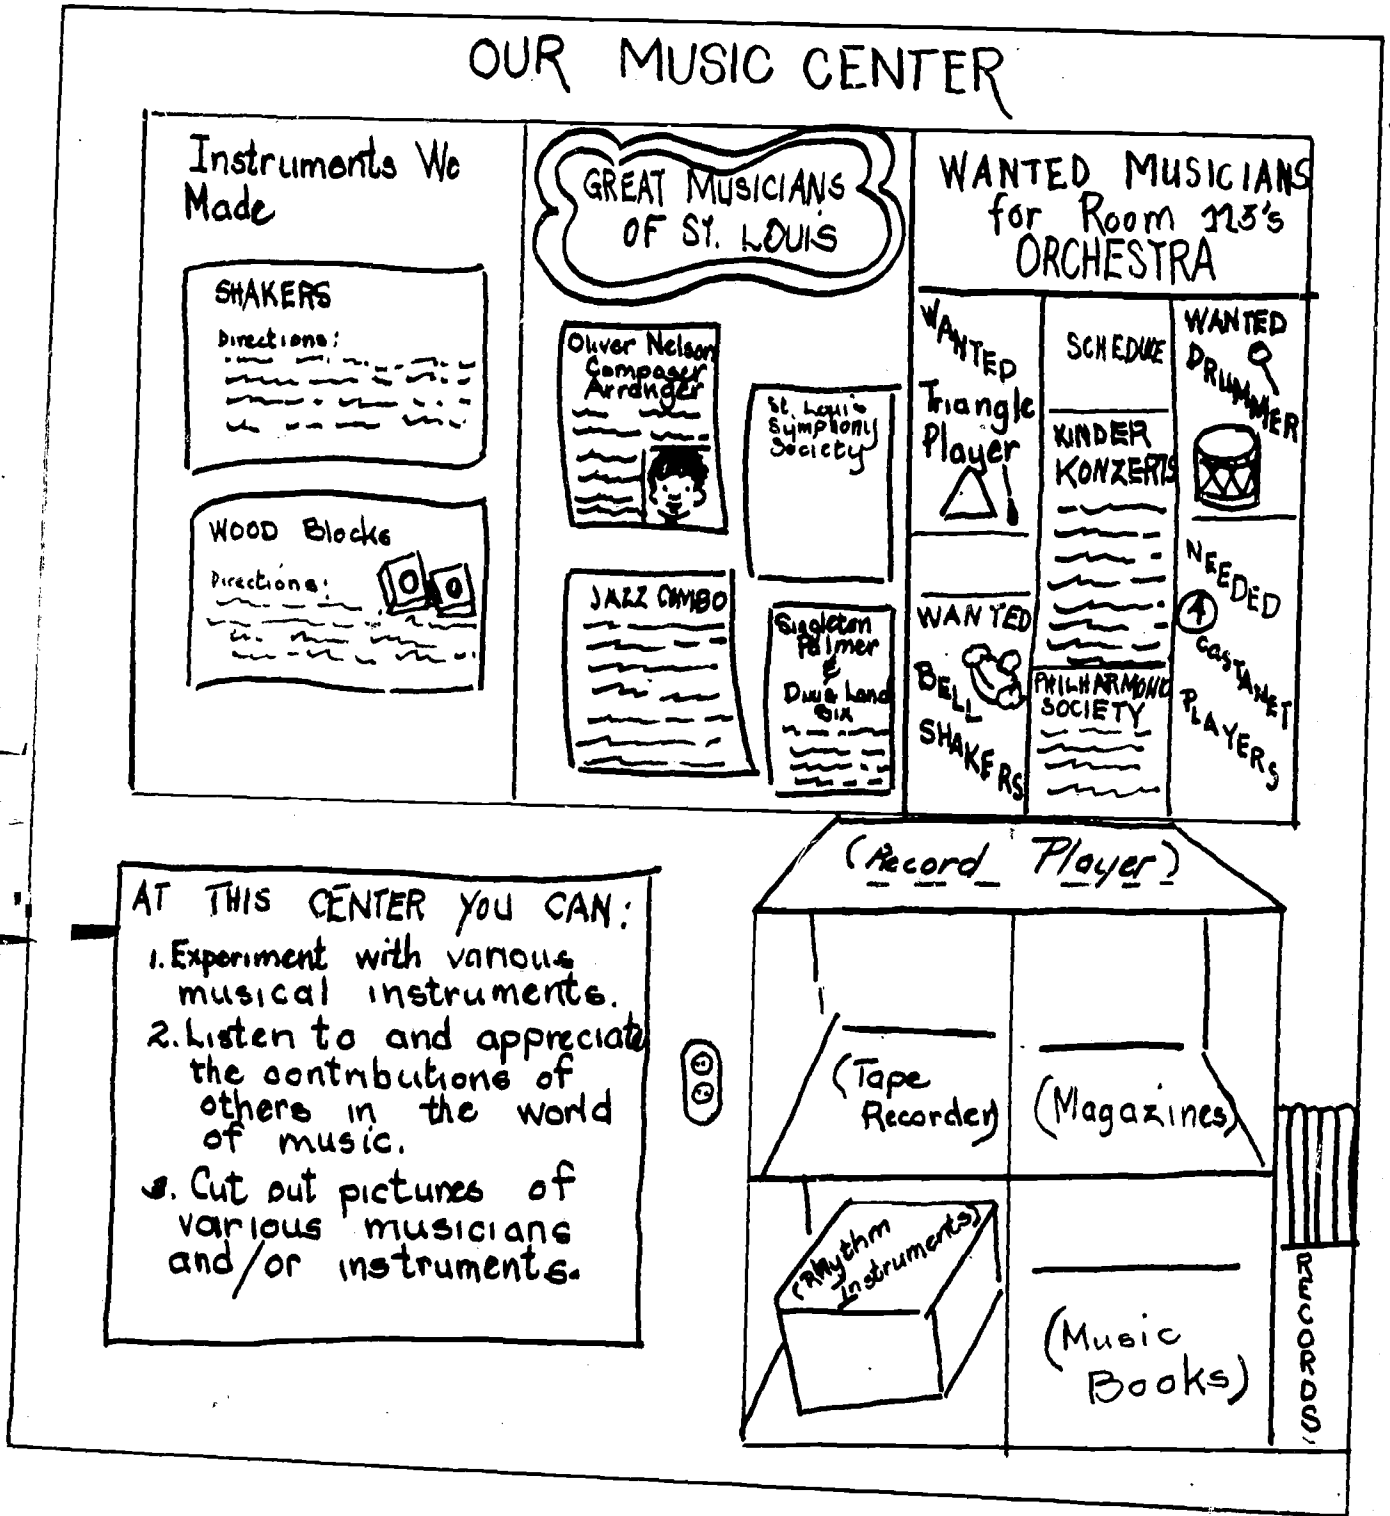 OUR MUSIC CENTER
Instruments We
Made
SHAKERS
Directions:
WOOD Blocks
Directions:
GREAT MUSICIANS
OF ST. LOUIS
Oliver Nelson
Composer
Arranger
St. Louis
Symphony
Society
JAZZ COMBO
Singleton
Palmer
&
Dixie Land
Six
WANTED MUSICIANS
for Room 113's
ORCHESTRA
WANTED
Triangle
Player
WANTED
BELL
SHAKERS
SCHEDULE
KINDER
KONZERTS
PHILHARMONIC
SOCIETY
WANTED
DRUMMER
NEEDED
4
CASTANET
PLAYERS
AT THIS CENTER YOU CAN:
1. Experiment with various
musical instruments.
2. Listen to and appreciate
the contributions of
others in the world
of music.
3. Cut out pictures of
various musicians
and/or instruments.
(Record Player)
(Tape
Recorder)
(Magazines)
(Rhythm
Instruments)
(Music
Books)
RECORDS